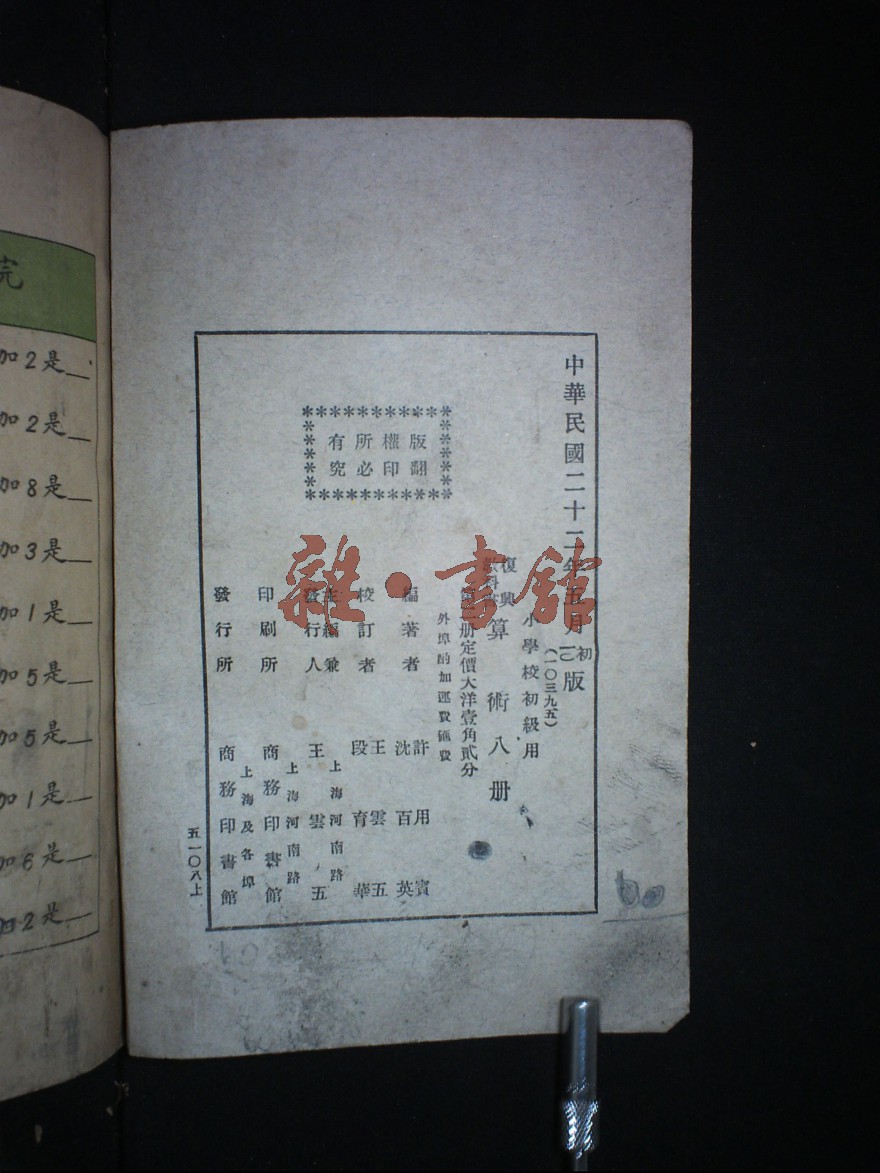 中華民國二十二年五月初版
(一〇三九五)
小學校初級用
復興
教科書
算術八册
第一册定價大洋壹角貳分
外埠酌加運費匯費
版權所有
翻印必究
編著者
許用賓
沈百英
校訂者
王雲五
段育華
主編兼
發行人
上海河南路
王雲五
印刷所
上海河南路
商務印書館
發行所
上海及各埠
商務印書館
五一〇八上
雜·書館
完
加2是__
加2是__
加8是__
加3是__
加1是__
加5是__
加5是__
加1是__
加6是__
加2是__